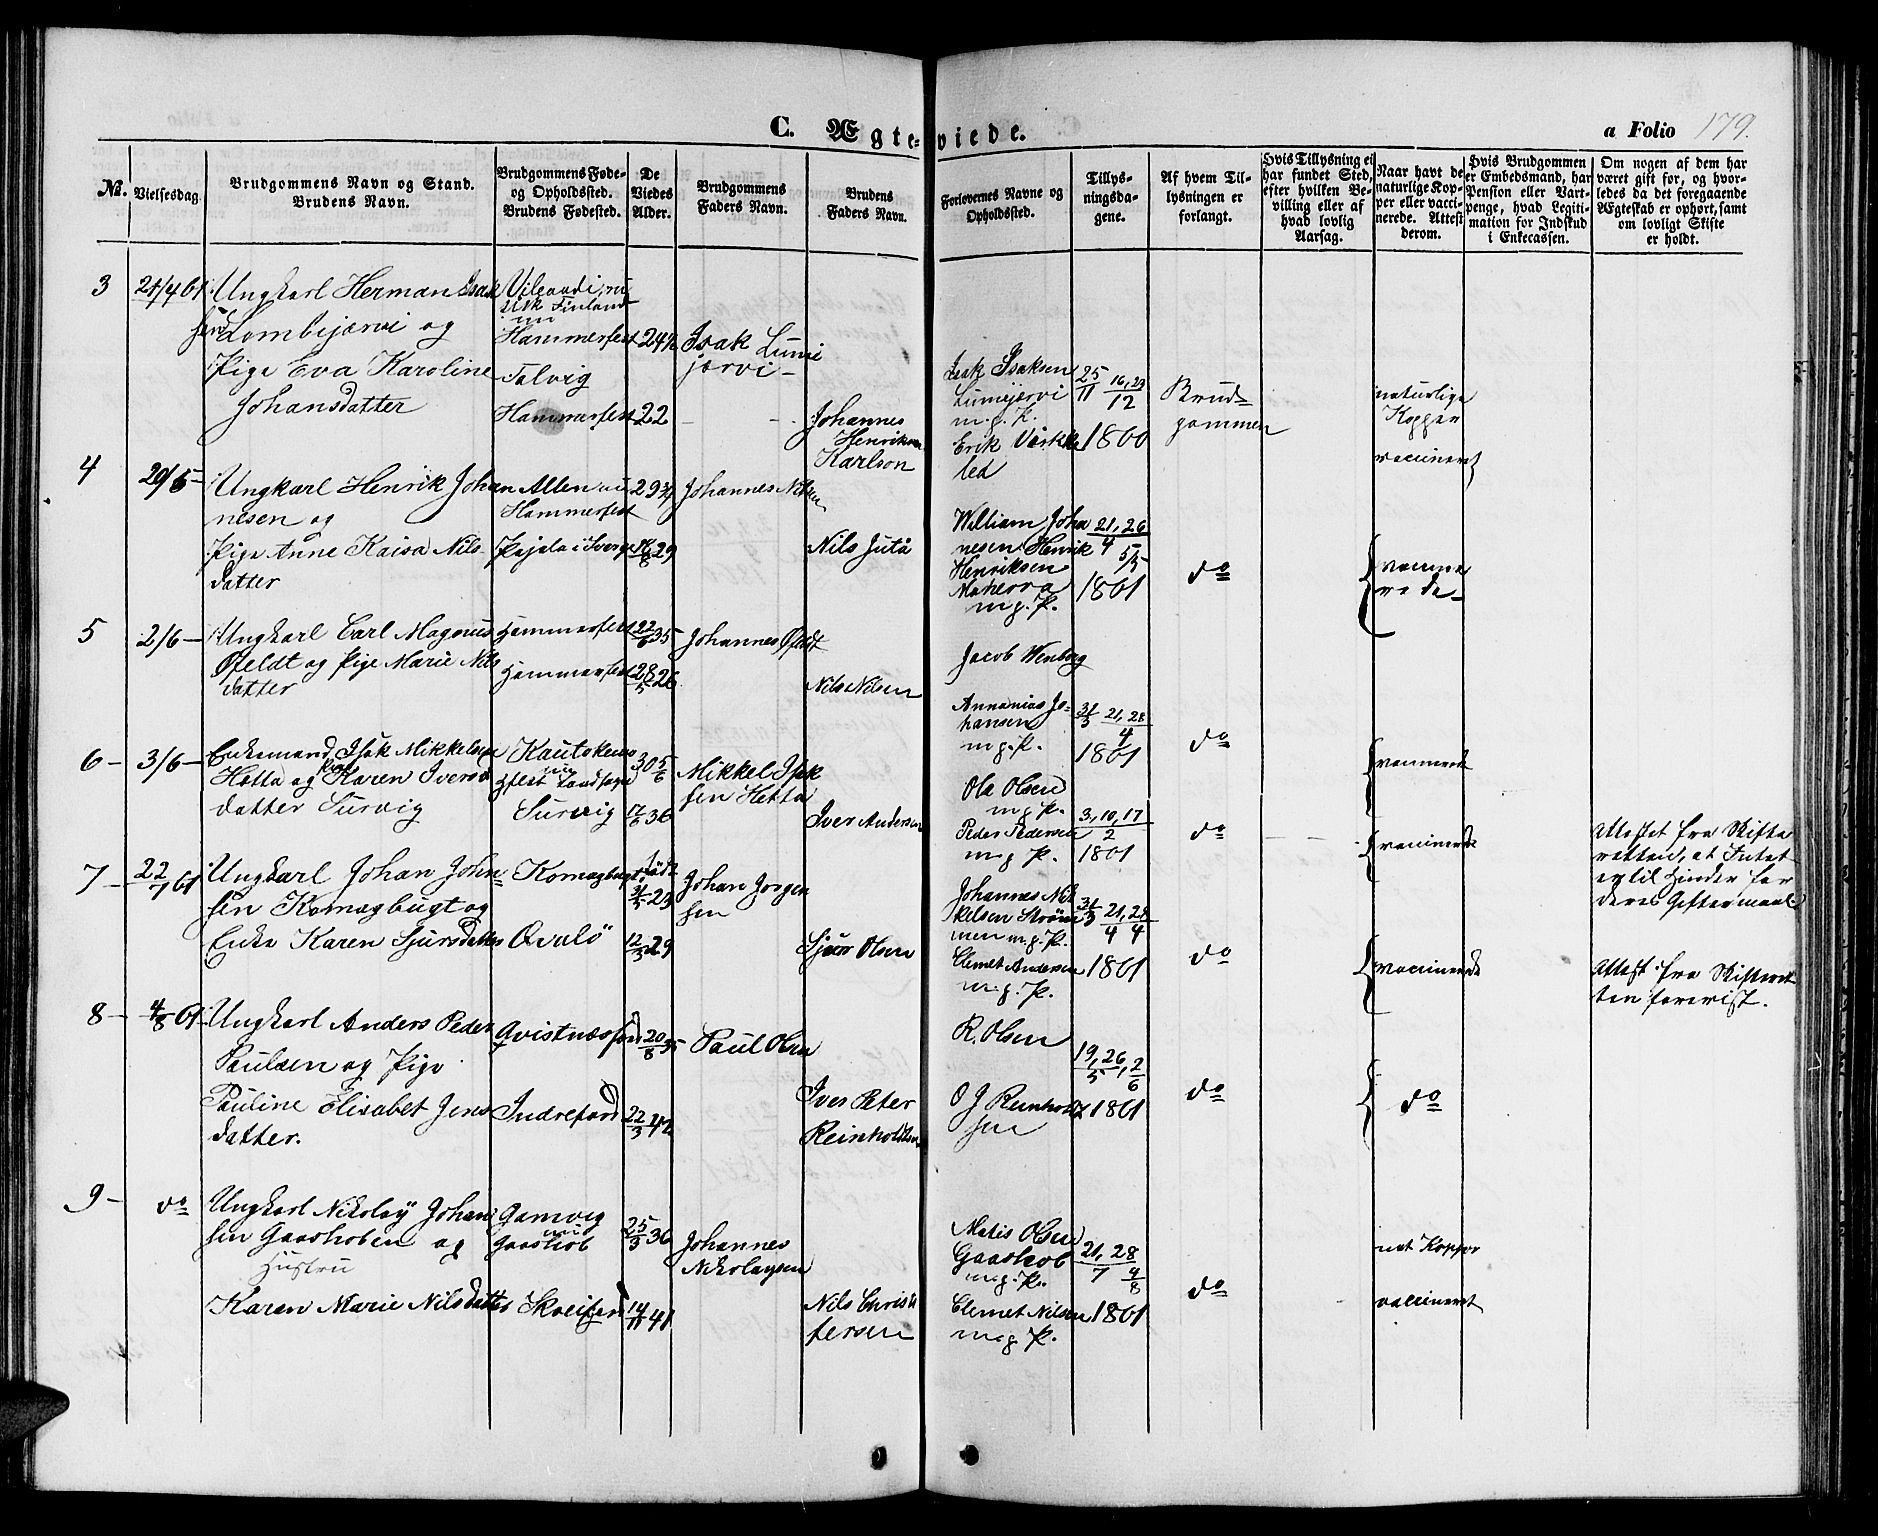 C. Ægte-viede.
a Folio 179.
No.
Vielsesdag.
Brudgommens Navn og Stand.
Brudens Navn.
Brudgommens Føde-
og Opholdssted.
Brudens Fødested.
De
Viedes
Alder.
Brudgommens
Faders Navn.
Brudens
Faders Navn.
Forlovernes Navne og
Opholdssted.
Tillys-
ningsda-
gene.
Af hvem Til-
lysningen er
forlangt.
Hvis Tillysning ei
har fundet Sted,
efter hvilken Be-
villing eller af
hvad lovlig
Aarsag.
Naar havt de
naturlige Kop-
per eller vacci-
nerede. Attest
derom.
Hvis Brudgommen
er Embedsmand, har
Pension eller Vart-
penge, hvad Legiti-
mation for Indskud
i Enkecassen.
Om nogen af dem har
været gift før, og hvor-
ledes da det foregaaende
Ægteskab er ophørt, samt
om lovligt Skifte
er holdt.
3
21/4 61
Ungkarl Herman Isak
sen Lombijærvi og
Pige Eva Karoline
Johansdatter
Finland
Hammerfest
Talvig
Hammerfest
24½
22
Isak Lumi
jærvi
Johannes
Henriksen
Karlson
Isak Isaksen
Lumijærvi
m. g. P.
Erik
25/11 16,23/12
1860
Brud-
gommen
naturlige
Kopper
vaccineret
4
29/5
Ungkarl Henrik Johan
nesen og
Pige Anne Kaisa Nils
datter
Alten nu
Hammerfest
Pajala i Sverge
29¾
29
Johannes Nilsen
Nils Juta
William Joha
nesen Henrik
Henriksen
m. g. P.
21, 26/4 5/5
1861
do
vaccine
re de
5
2/6
Ungkarl Carl Magnus
Qfeldt og Pige Marie Nils
datter
Hammerfest
Hammerfest
22/6 35
28/5 26
Johannes Qfeldt
Nils Nilsen
Jacob Wenberg
Annanias Jo-
hansen
m. g. P.
31/3 21, 28/4
1861
do
vaccinerede
6
3/6
Enkemand Isak Mikkelsen
Hætta og Pige Karen Ivers
datter Survig
Kautokeino
nu
Hfest Landsogn
Survig
30 5/6
17/6 36
Mikkel Isak
sen Hætta
Iver Andersen
Ole Olsen
m. g. P.
Peder Pedersen
m. g. P.
3, 10, 17/2
1861
do
vaccinerede
Attestet fra Skifte
retten, at Intet
er til Hinder for
deres Giftermaal.
7
22/7 61
Ungkarl Johan Johan
sen Komagbugt og
Enke Karen Sjursdatter
Komagbugt
Qvalö
født
31/5 23
12/3 29
Johan Jørgen
sen
Sjur Olsen
Johannes Mik
kelsen Strøm
men m. g. P.
Clemet Andersen
m. g. P.
31/3 21/4 28/4
1861
do
vaccinerede
Attest fra Skifteret
ten forevist.
8
4/8 61
Ungkarl Anders Peder
Paulsen og Pige
Pauline Elisabet Jens
datter.
Qvistnæsfjord
Indrefjord
20/8 35
22/3 42
Paul Olsen
Iver Peter
Reinholdtsen
R. Olsen
O J Reinholdt
sen
19, 26/5, 2/6
1861
do
do
9
do
Ungkarl Nikolay Johan
sen Gaashoben og
Hustru
Karen Marie Nilsdatter
Gamvig
nu
Gaashob
25/3 36
14/11 41
Johannes
Nikolaysen
Nils Christ
fersen
Matis Olsen
Gaashob
m. g. P.
Clemet Nilsen
m. g. P.
21, 28/7 4/8
1861
do
nat Kopper
vaccineret